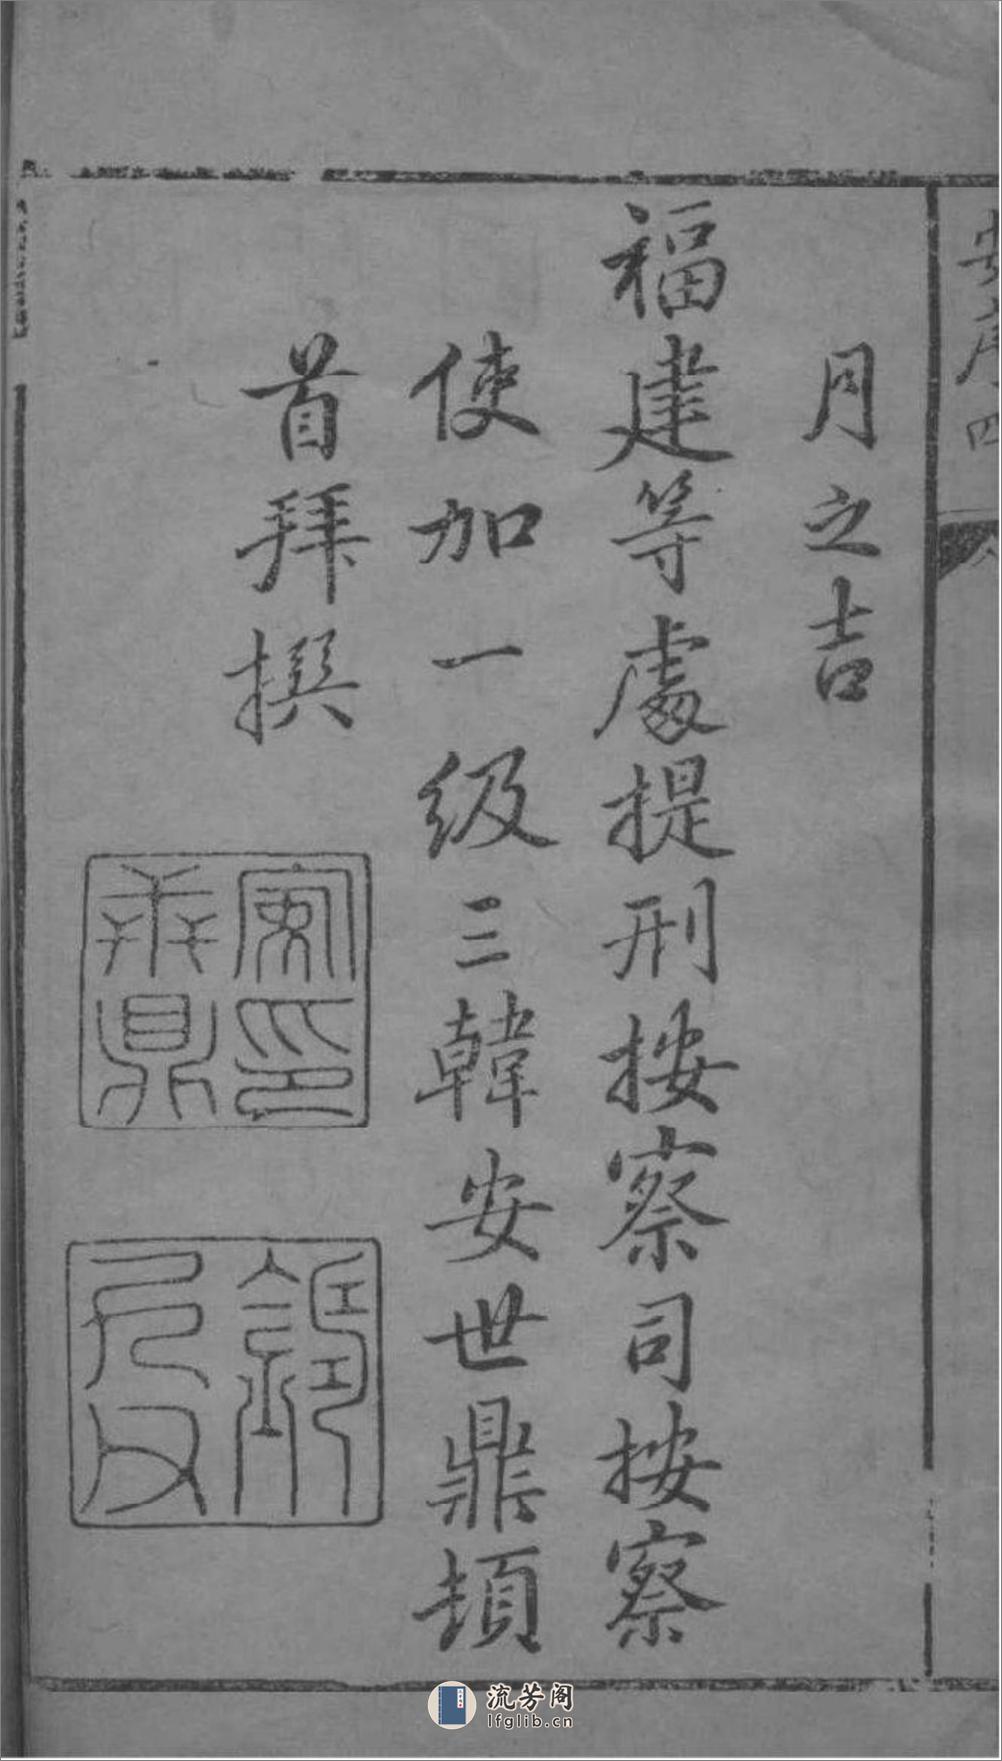 安序四
月之吉
福建等處提刑按察司按察
使加一級三韓安世鼎頓
首拜撰
流芳阁
lfglib.cn